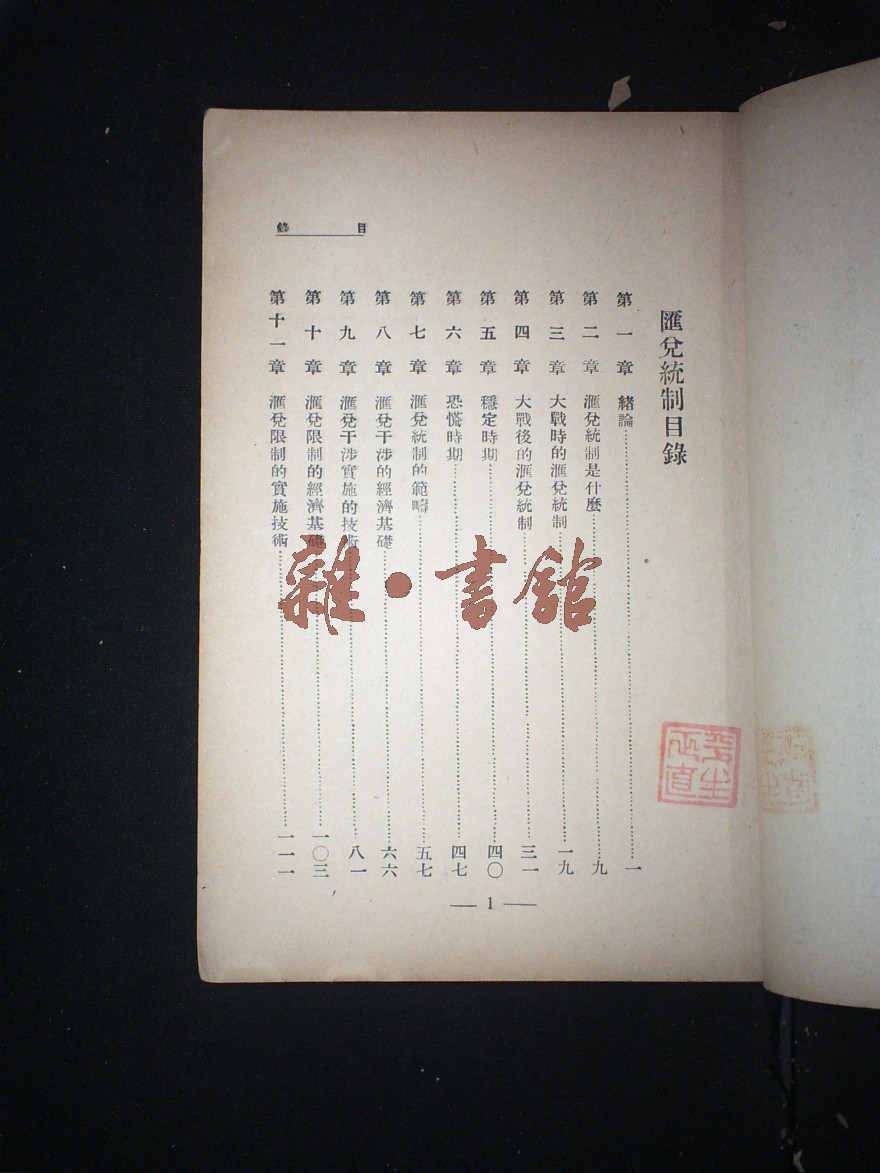 目錄
匯兌統制目錄
第一章 緒論……一
第二章 滙兌統制是什麼……九
第三章 大戰時的滙兌統制……一九
第四章 大戰後的滙兌統制……三一
第五章 穩定時期……四〇
第六章 恐慌時期……四七
第七章 滙兌統制的範疇……五七
第八章 滙兌干涉的經濟基礎……六六
第九章 滙兌干涉實施的技術……八一
第十章 滙兌限制的經濟基礎……一〇三
第十一章 滙兌限制的實施技術……一一一
— 1 —
雜·書館